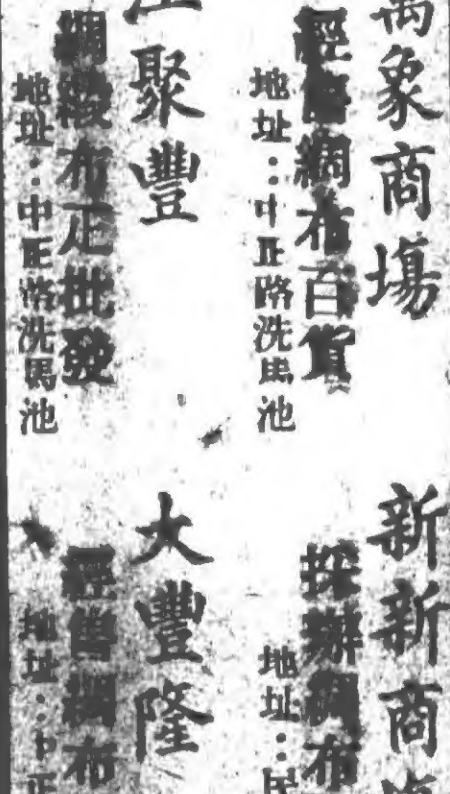 萬象商塲
經售綢布百貨
地址：中正路洗馬池
江聚豐
綢緞布疋批發
地址：中正路洗馬池
新新商
採辦綢布
地址：民
大豐隆
經售綢布
地址：中正